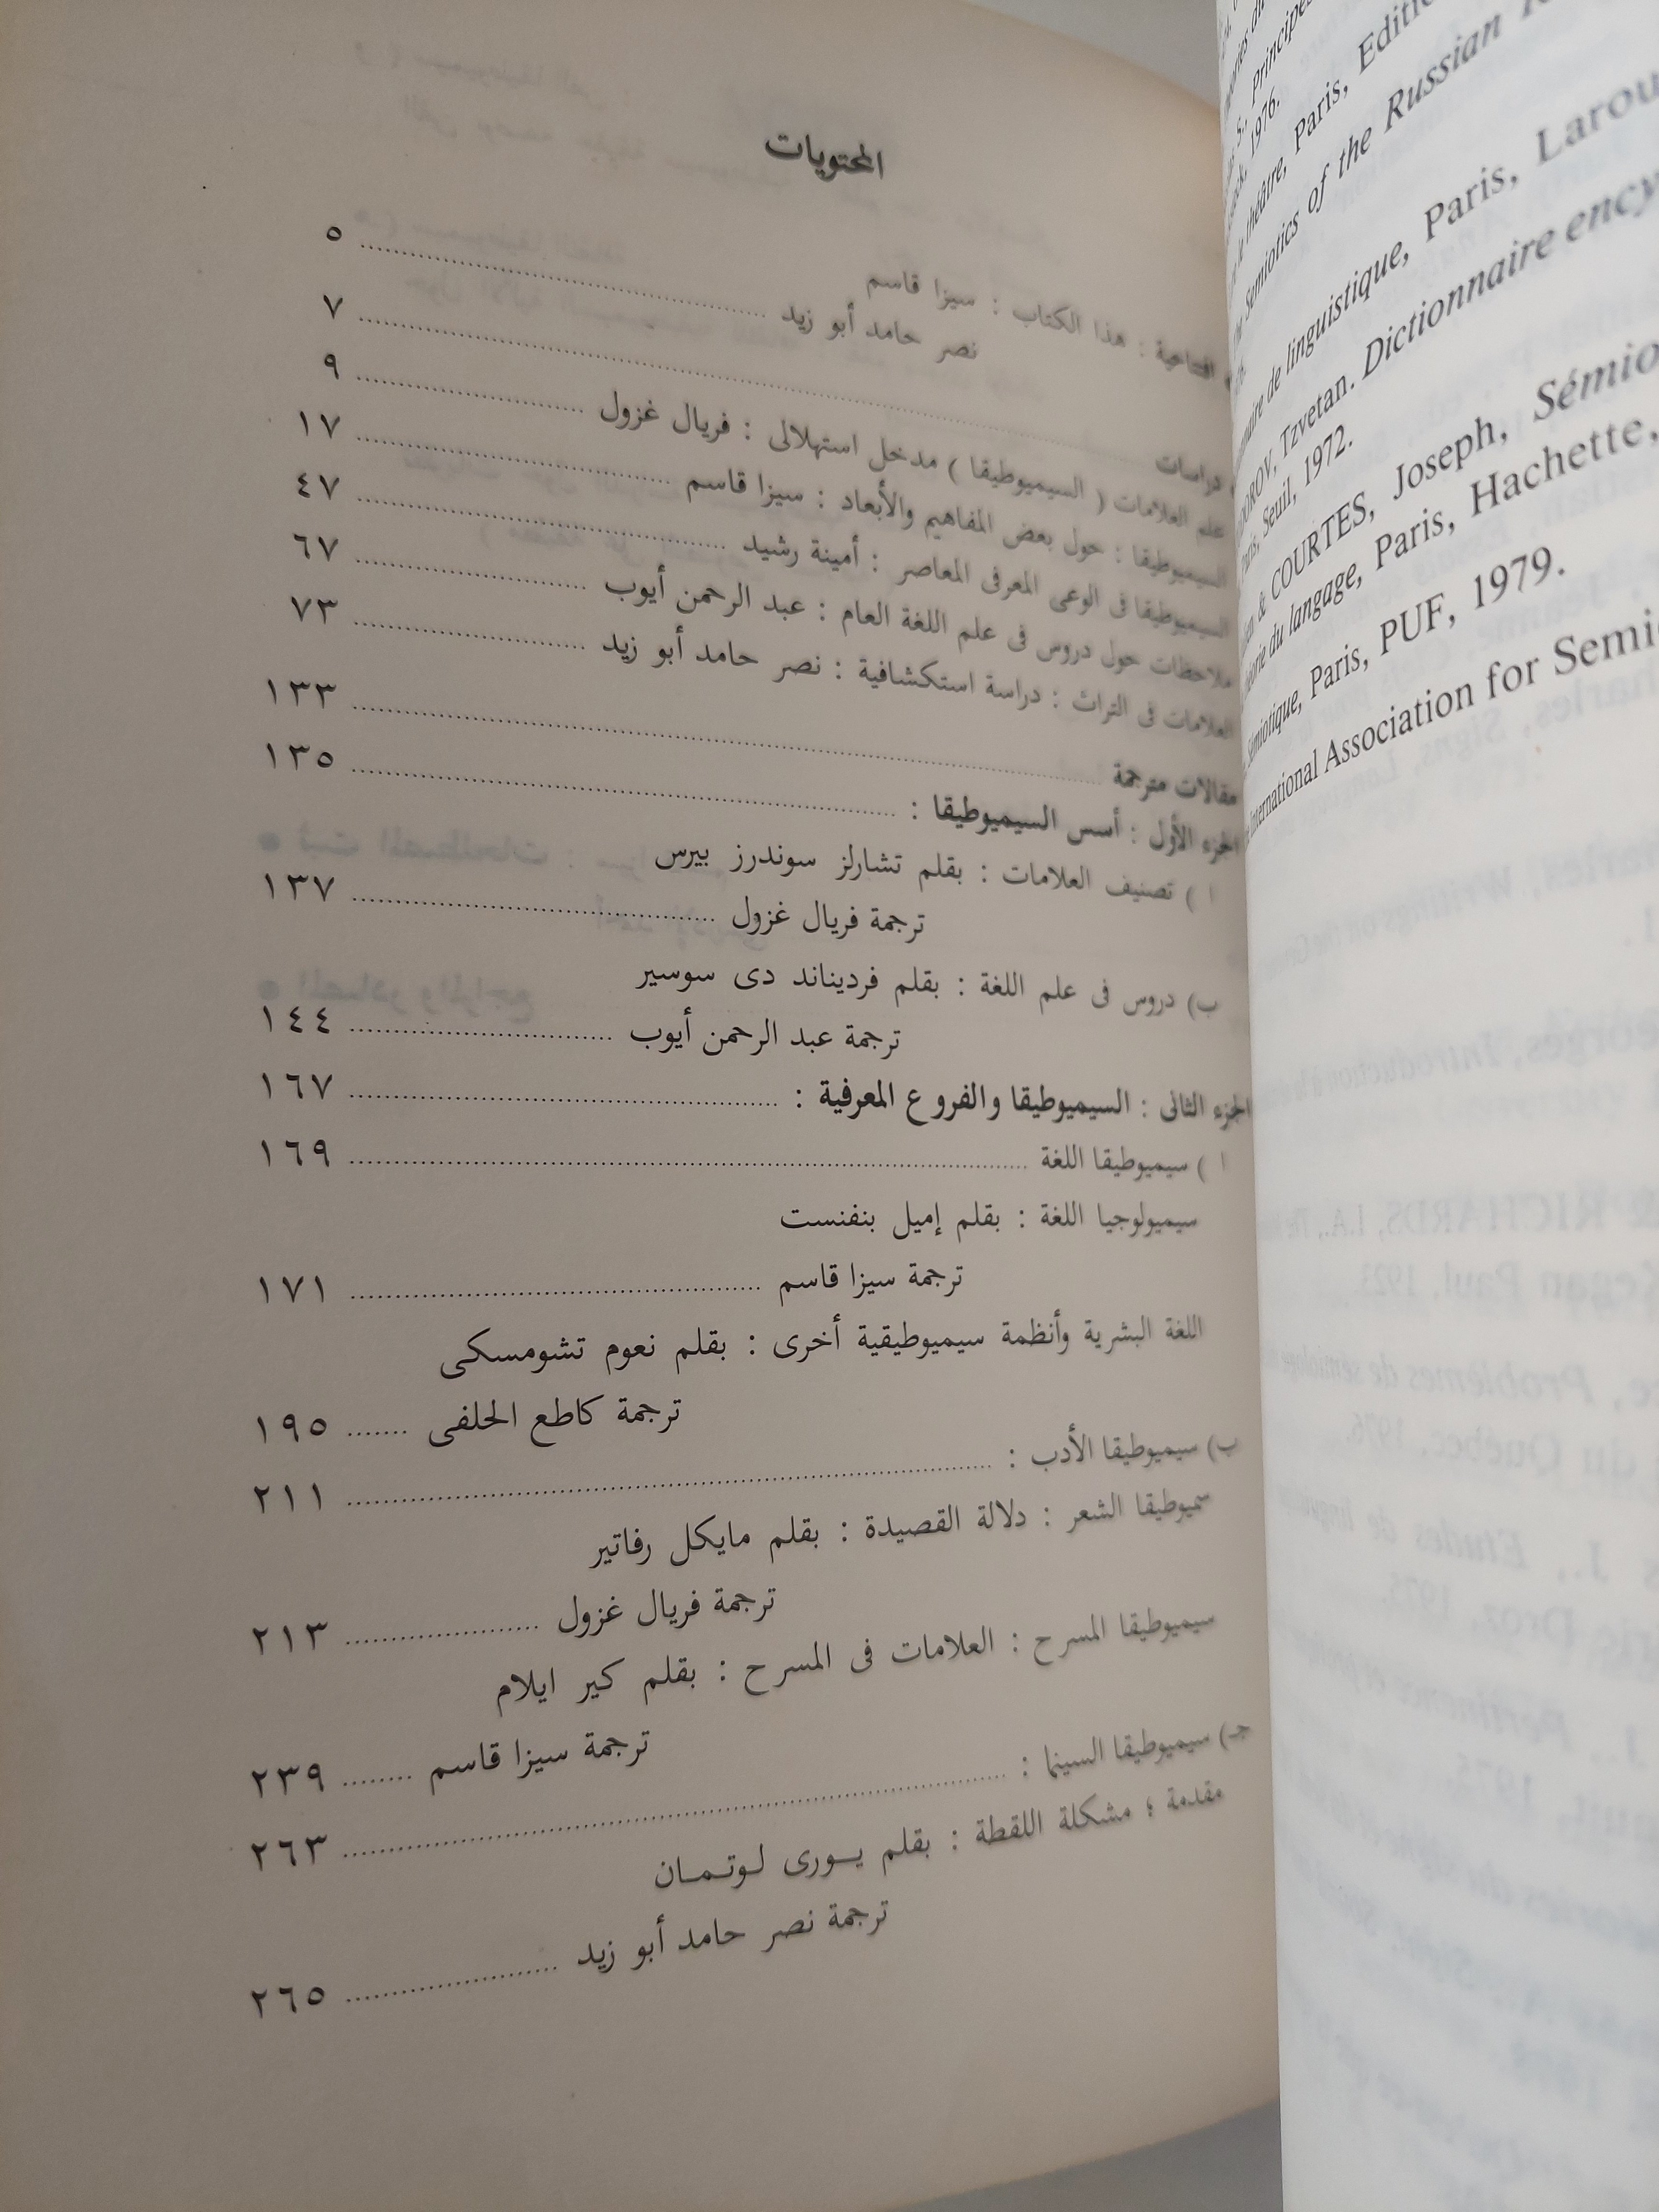 المحتويات
افتتاحية : هذا الكتاب : سيزا قاسم
نصر حامد أبو زيد ........ ٥
دراسات ........ ٧
علم العلامات ( السيميوطيقا ) مدخل استهلالى : فريال غزول ........ ٩
السيميوطيقا : حول بعض المفاهيم والأبعاد : سيزا قاسم ........ ١٧
السيميوطيقا فى الوعى المعرفى المعاصر : أمينة رشيد ........ ٤٧
ملاحظات حول دروس فى علم اللغة العام : عبد الرحمن أيوب ........ ٦٧
العلامات فى التراث : دراسة استكشافية : نصر حامد أبو زيد ........ ٧٣
مقالات مترجمة ........ ١٣٣
الجزء الأول : أسس السيميوطيقا : ........ ١٣٥
ا ) تصنيف العلامات : بقلم تشارلز سوندرز بيرس
ترجمة فريال غزول ........ ١٣٧
ب) دروس فى علم اللغة : بقلم فرديناند دى سوسير
ترجمة عبد الرحمن أيوب ........ ١٤٤
الجزء الثانى : السيميوطيقا والفروع المعرفية : ........ ١٦٧
ا ) سيميوطيقا اللغة ........ ١٦٩
سيميولوجيا اللغة : بقلم إميل بنفنست
ترجمة سيزا قاسم ........ ١٧١
اللغة البشرية وأنظمة سيميوطيقية أخرى : بقلم نعوم تشومسكى
ترجمة كاطع الحلفى ........ ١٩٥
ب) سيميوطيقا الأدب : ........ ٢١١
سميوطيقا الشعر : دلالة القصيدة : بقلم مايكل رفاتير
ترجمة فريال غزول ........ ٢١٣
سيميوطيقا المسرح : العلامات فى المسرح : بقلم كير ايلام
ترجمة سيزا قاسم ........ ٢٣٩
جـ) سيميوطيقا السينما : ........ ٢٦٣
مقدمة ؛ مشكلة اللقطة : بقلم يـورى لـوتـمـان
ترجمة نصر حامد أبو زيد ........ ٢٦٥
Principes
1976.
théâtre, Paris, Editio
Semiotics of the Russian
de linguistique, Paris, Larou
Tzvetan. Dictionnaire ency
Paris, Seuil, 1972.
& COURTES, Joseph, Sémio
du langage, Paris, Hachette,
Paris, PUF, 1979.
International Association for Semi